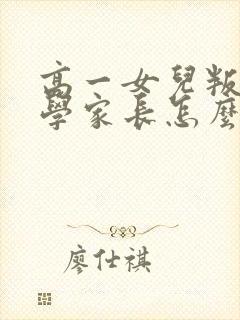 高一女兒叛
學家長怎麼
廖仕祺